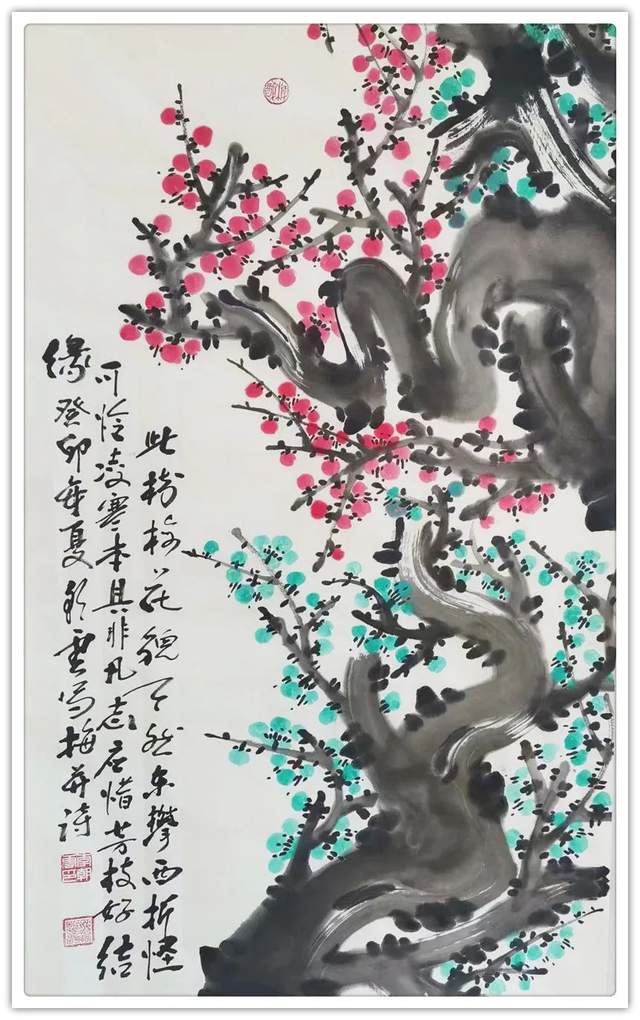 此树梅花貌天然东攀西折怪
可怜凌寒本具非凡志应惜芳枝好结
缘癸卯年夏雲写梅并诗